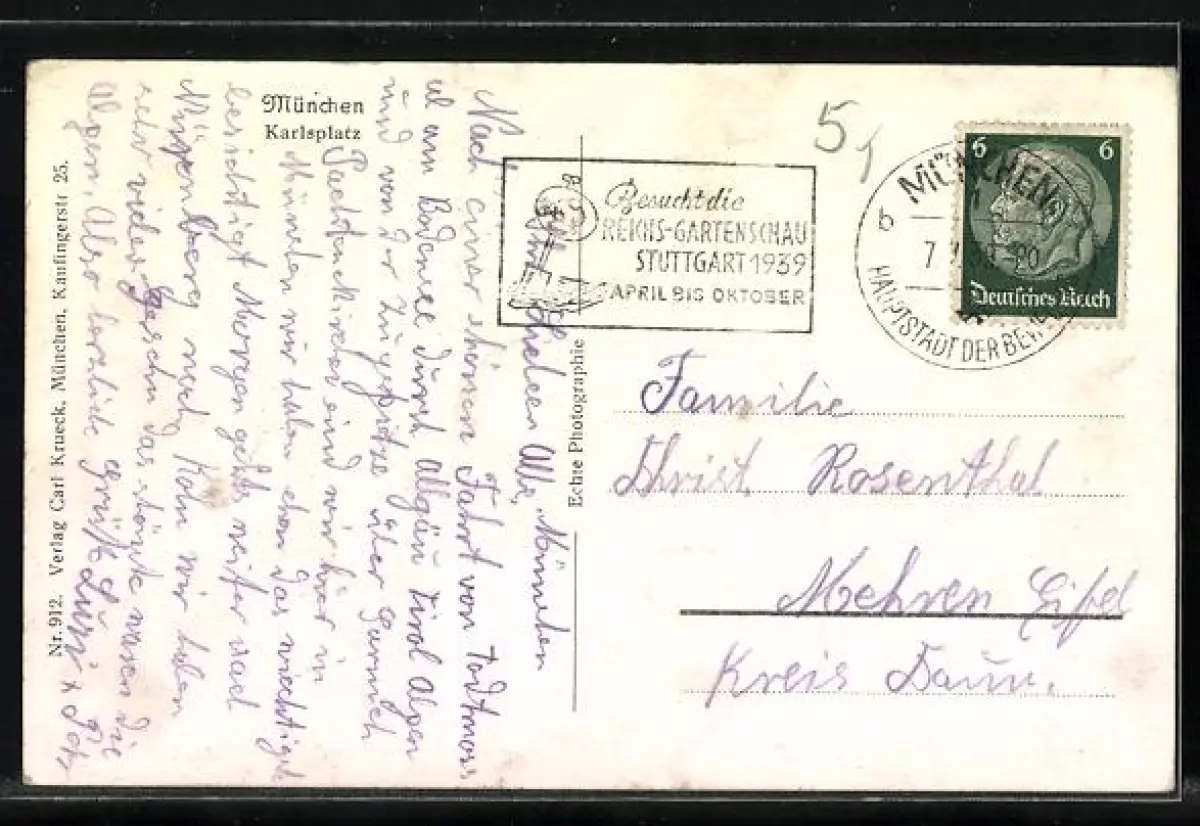 München
Karlsplatz
Nr. 912. Verlag Carl Krueck, München, Kaufingerstr 25.
Echte Photographie
Besucht die
REICHS-GARTENSCHAU
STUTTGART 1939
APRIL BIS OKTOBER
5
6 6
Deutsches Reich
MÜNCHEN
6
7
-20
HAUPTSTADT DER BEWE
Familie
Christ. Rosenthal
Mehren Eifel
Kreis Daun.
München
Ihr Lieben Alle,
Nach einer schönen Fahrt von Todtmoos
am Bodensee durch Allgäu Tirol Alpen
und von der Zugspitze über Garmich
sind wir hier in
München wir haben das
besichtigt Morgen gehts weiter nach
nach Köln wir haben
sehr viel gesehn das schönste waren die
Alpen, Also herzliche Grüße